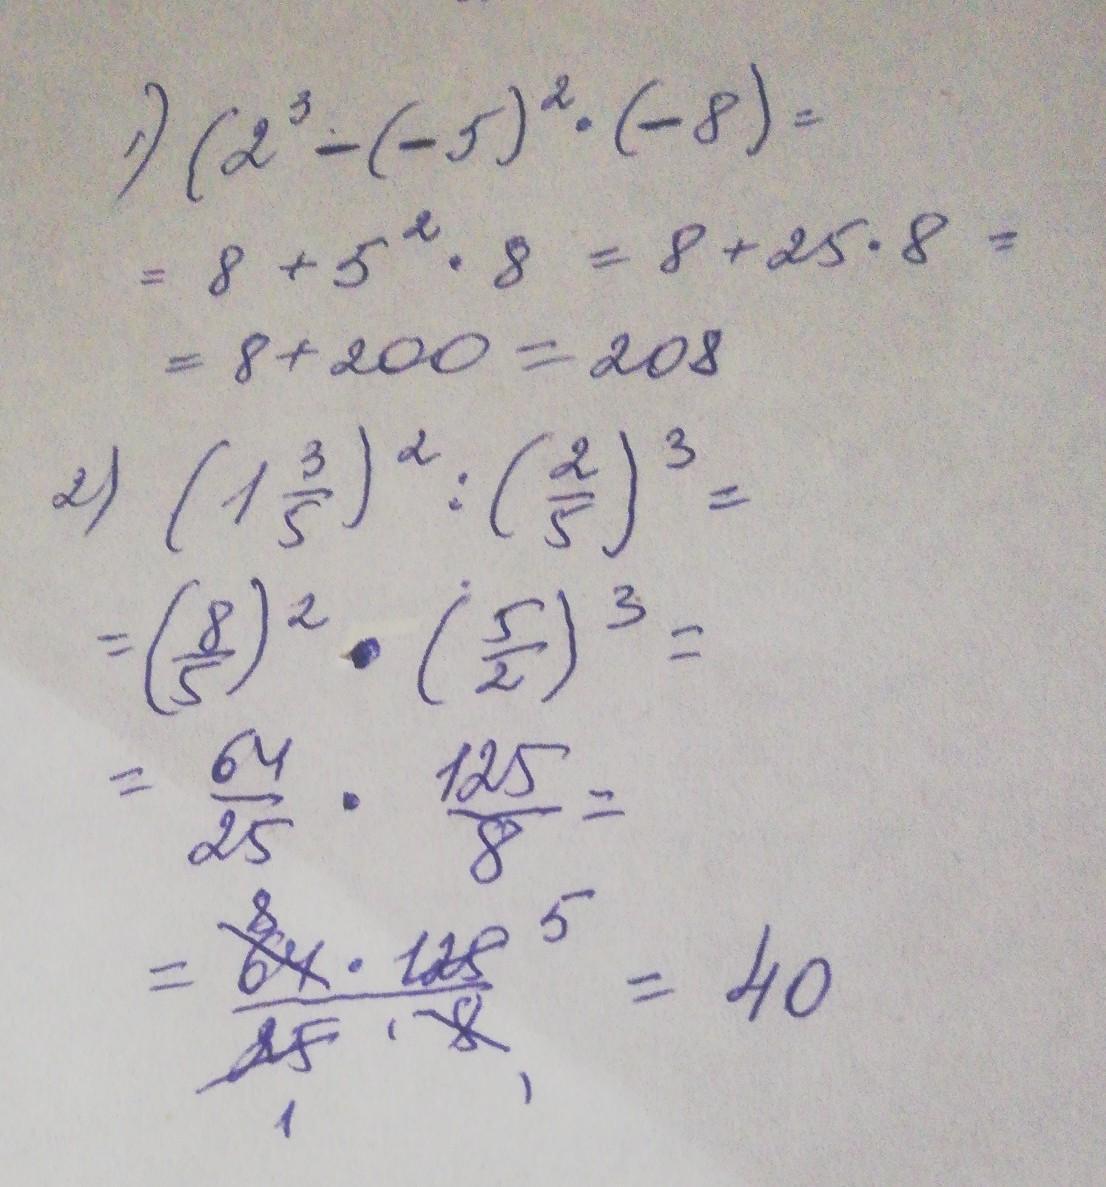 1) (2³ - (-5)² · (-8) =
= 8 + 5² · 8 = 8 + 25 · 8 =
= 8 + 200 = 208
2) (1 3/5)² : (2/5)³ =
= (8/5)² · (5/2)³ =
= 64/25 · 125/8 =
= 64 8 · 125 5 / 25 1 · 8 1 = 40